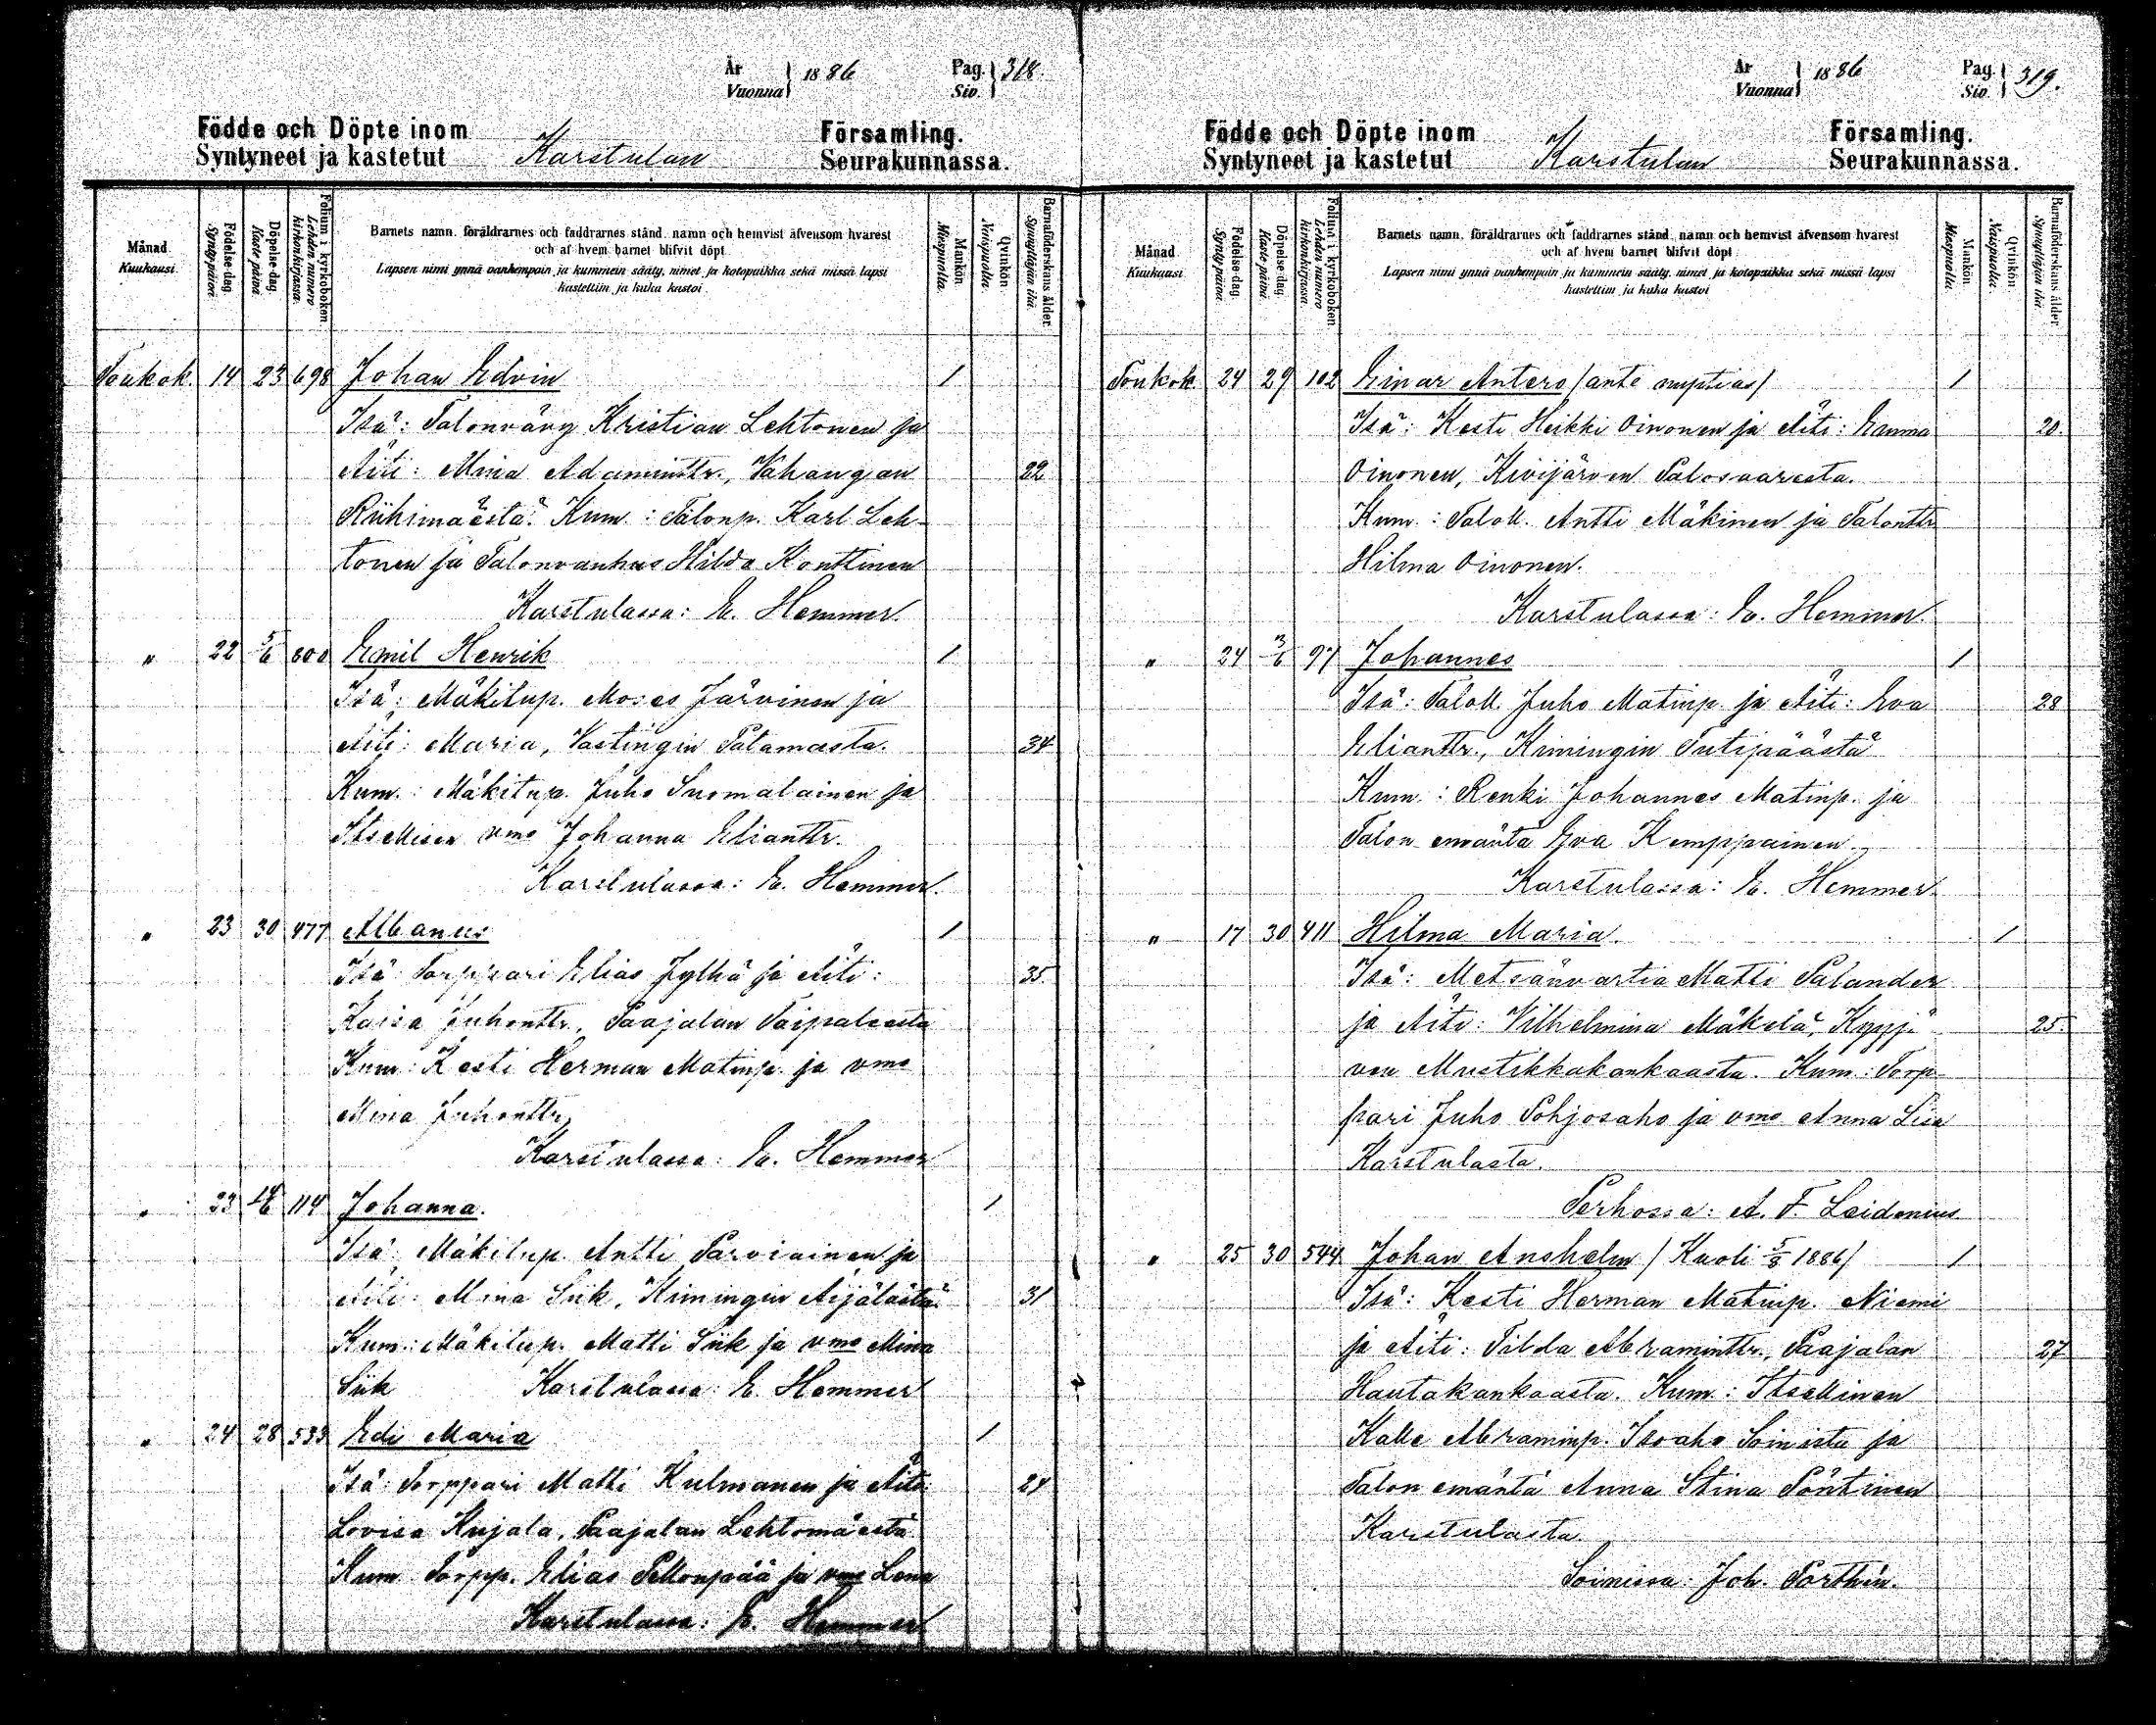 År Vuonna 1886 Pag. Siv. 318.
Födde och Döpte inom Församling.
Syntyneet ja kastetut Karstulan Seurakunnassa.
Månad Kuukausi
Födelse-dag. Synty päivä.
Döpelse-dag. Kaste päivä.
Folium i kyrkoboken. Lehden numero kirkonkirjassa.
Barnets namn, föräldrarnes och faddrarnes stånd, namn och hemvist äfvensom hvarest
och af hvem barnet blifvit döpt
Lapsen nimi ynnä vanhempain ja kummein sääty, nimet ja kotopaikka sekä missä lapsi
kastettiin ja kuka kastoi
Mankön. Miespuolta.
Qvinkön. Vaispuolta.
Barnaföderskans ålder. Synnyttäjän ikä.
Toukok. 14 23 698 Johan Edvin 1
Isä: Talonväny Kristian Lehtonen ja
Äiti: Mina Adamintr., Vahangan 22
Riihimäestä. Kum.: Talonp. Karl Leh-
tonen ja Talonvanhus Hilda Konttinen
Karstulassa: E. Hemmer.
" 22 5/6 600 Emil Henrik 1
Isä: Mäkitup. Moses Järvinen ja
Äiti: Maria, Vastingin Patamasta. 34
Kum.: Mäkitup. Juho Suomalainen ja
Itsellisen vmo Johanna Elianttr.
Karstulassa: E. Hemmer.
" 23 30 477 Albanus 1
Isä: Torppari Elias Jylhä ja Äiti: 35.
Kaisa Juhonttr., Paajalan Taipaleesta
Kum: Kesti Herman Matinp. ja vmo
Mina Juhonttr.
Karstulassa: E. Hemmer
" 23 14/6 114 Johanna. 1
Isä: Mäkitup. Antti Parviainen ja
Äiti: Mina Siik, Kimingin Äijälästä. 31
Kum.: Mäkitup. Matti Siik ja vmo Mina
Siik Karstulassa: E. Hemmer
" 24 28 533 Edi Maria 1
Isä: Torppari Matti Kulmanen ja Äiti: 24
Lovisa Kujala, Paajalan Lehtomäestä
Kum. Torpp. Elias Pellonpää ja vmo Lena
Karstulassa: E. Hemmer
År Vuonna 1886 Pag. Siv. 319.
Födde och Döpte inom Församling.
Syntyneet ja kastetut Karstulan Seurakunnassa.
Månad Kuukausi
Födelse-dag. Synty päivä.
Döpelse-dag. Kaste päivä.
Folium i kyrkoboken. Lehden numero kirkonkirjassa.
Barnets namn, föräldrarnes och faddrarnes stånd, namn och hemvist äfvensom hvarest
och af hvem barnet blifvit döpt
Lapsen nimi ynnä vanhempain ja kummein sääty, nimet ja kotopaikka sekä missä lapsi
kastettiin ja kuka kastoi
Mankön. Miespuolta.
Qvinkön. Vaispuolta.
Barnaföderskans ålder. Synnyttäjän ikä.
Toukok 24 29 102 Einar Antero /ante nuptias/ 1
Isä: Kesti Heikki Oinonen ja Äiti: Emma 20.
Oinonen, Kivijärven Palosaaresta.
Kum.: Taloll. Antti Mäkinen ja Talonttr
Hilma Oinonen.
Karstulassa: E. Hemmer.
" 24 3/6 97 Johannes 1
Isä: Taloll. Juho Matinp. ja Äiti: Eva 28
Elianttr., Kimingin Tutipäästä
Kum.: Renki Johannes Matinp. ja
Talon emäntä Eva Kemppainen.
Karstulassa: E. Hemmer.
" 17 30 411 Hilma Maria. 1
Isä: Metsänvartia Matti Palander
ja Äiti: Vilhelmina Mäkelä, Kyyjä- 25.
ven Mustikkakankaasta. Kum.: Torp-
pari Juho Pohjosaho ja vmo Anna Lisa
Karstulasta.
Perhossa: A. F. Leidenius
" 25 30 544 Johan Anshelm /Kuoli 5/8 1886/ 1
Isä: Kesti Herman Matinp. Niemi
ja Äiti: Tilda Abraminttr., Paajalan 27
Hautakankaasta. Kum.: Itsellinen
Kalle Abraminp. Isoaho Soinista ja
Talon emäntä Anna Stina Pöntinen
Karstulasta.
Soinissa: Joh. Porthén.